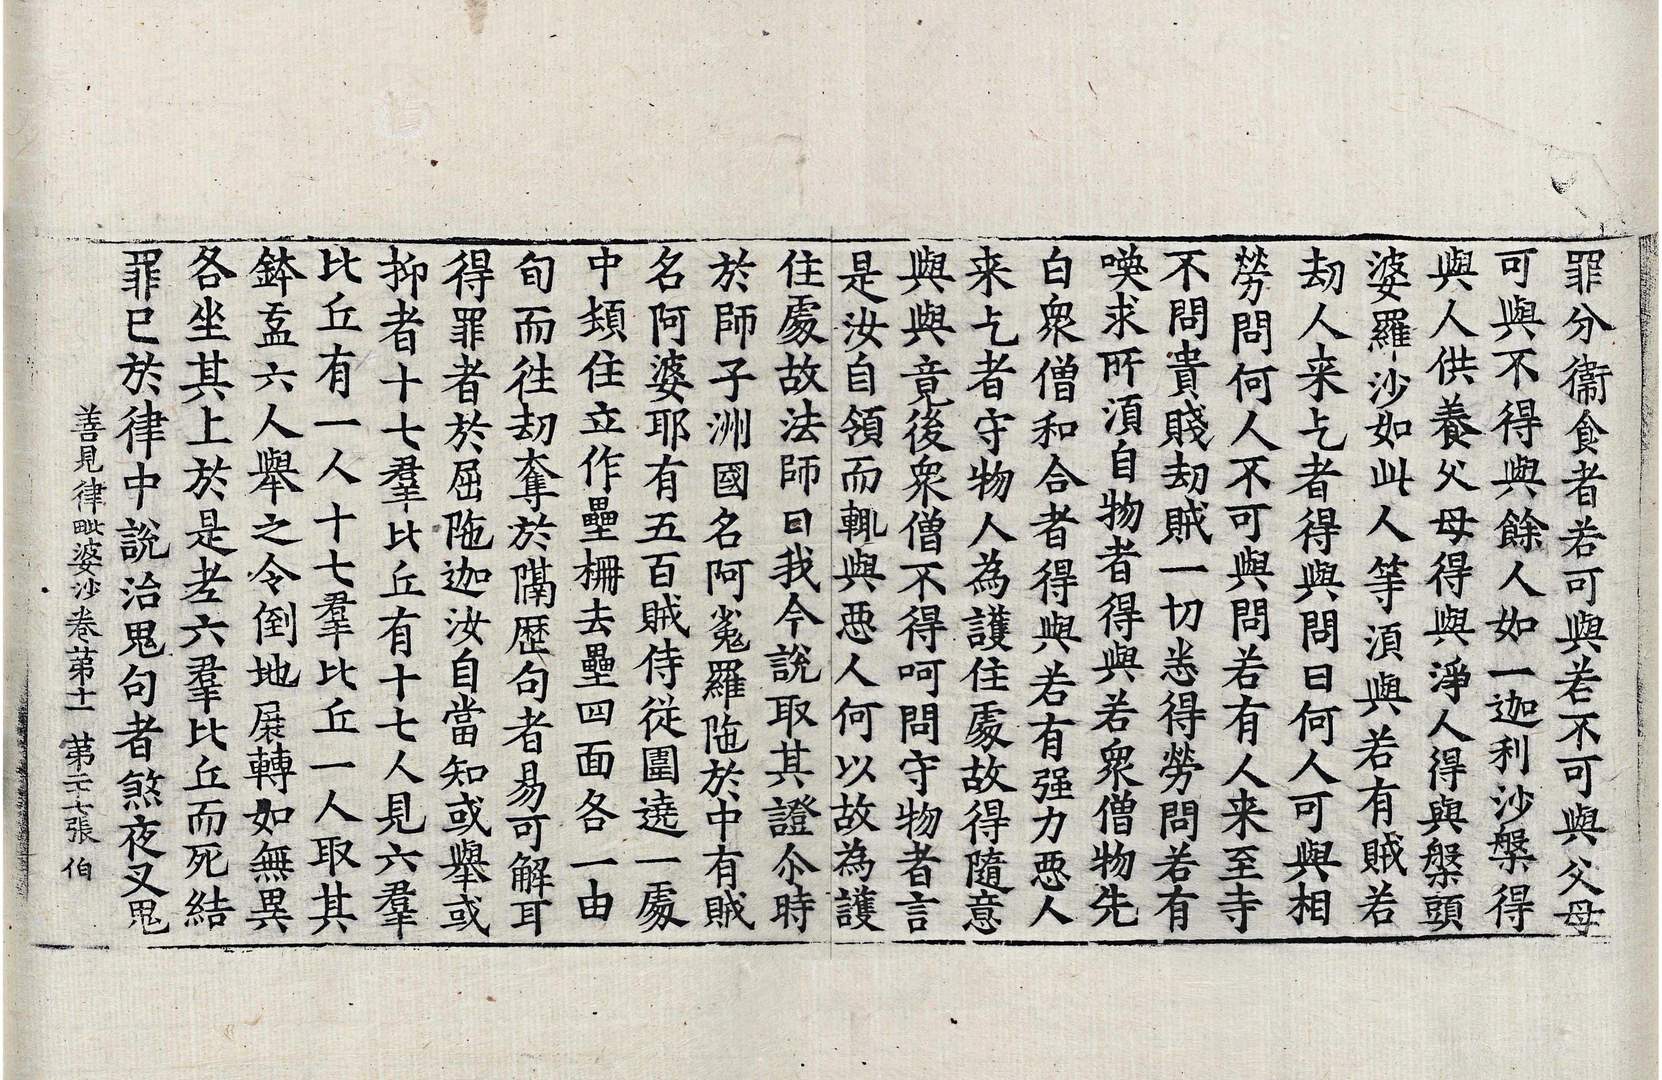 罪分衞食者若可與若不可與父母
可與不得與餘人如一迦利沙槃得
與人供養父母得與淨人得與槃頭
婆羅沙如此人等湏與若有賊若
劫人来乞者得與問曰何人可與相
勞問何人不可與問若有人来至寺
不問貴賤劫賊一切悉得勞問若有
喚求所湏自物者得與若衆僧物先
白衆僧和合者得與若有强力惡人
来乞者守物人為護住處故得隨意
與與竟後衆僧不得呵問守物者言
是汝自領而輒與惡人何以故為護
住處故法師曰我今說取其證尒時
於師子洲國名阿㝹羅陁於中有賊
名阿婆耶有五百賊侍従圍遶一處
中頓住立作壘柵去壘四面各一由
旬而徃劫奪於隔歴句者易可解耳
得罪者於屈陁迦汝自當知或舉或
抑者十七羣比丘有十七人見六羣
比丘有一人十七羣比丘一人取其
鉢盂六人舉之令倒地展轉如無異
各坐其上於是老六羣比丘而死結
罪已於律中說治鬼句者煞夜叉鬼
善見律毗婆沙卷苐十一 苐二十七張 伯